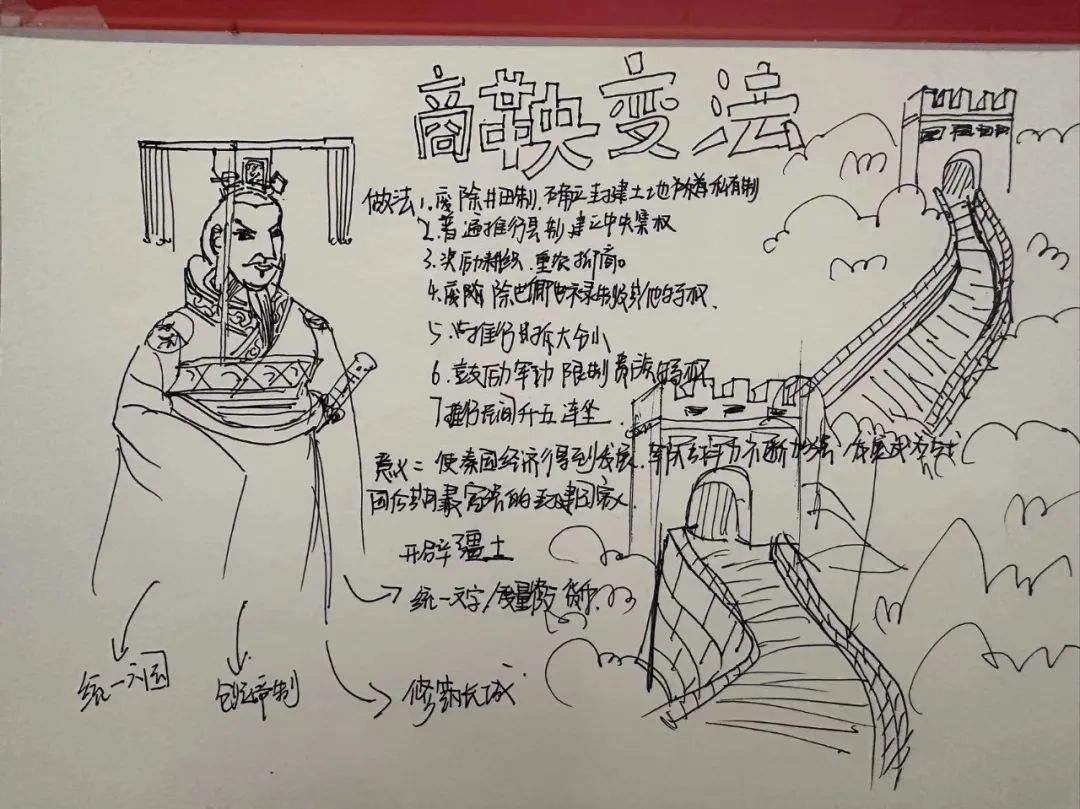 商鞅变法
做法1.废除井田制.确立封建土地 私有制
2.普遍推行县制 建立中央集权
3.奖励耕织.重农抑商。
4.废除 除世卿世禄制
5. 推行 大分小
6.鼓励军功 限制贵族的特权
7推行民间什五连坐.
意义:使秦国经济得到发展.军队战斗力不断加强.发展成为战
国后期最富强的封建国家.
开辟疆土
统一文字/度量衡 货币.
修筑长城
统一六国
创立帝制